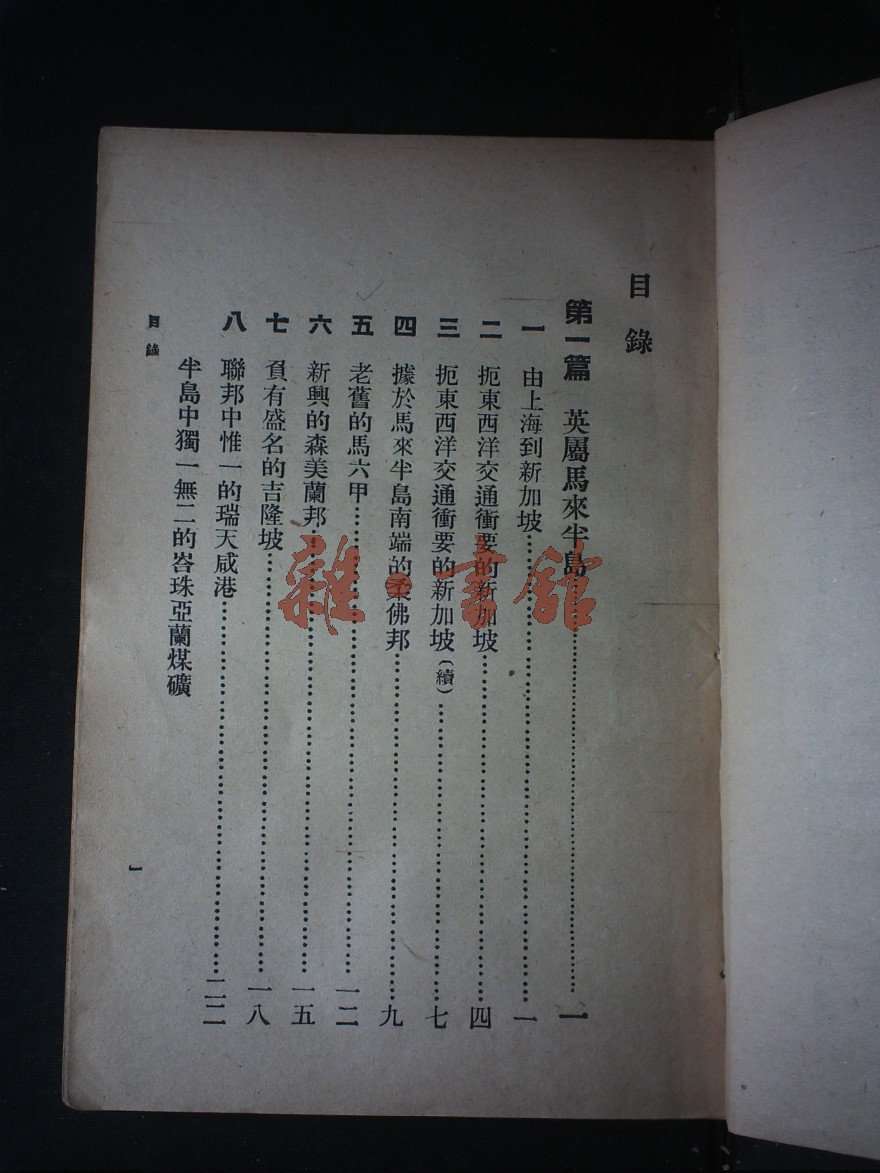 目錄
第一篇 英屬馬來半島……一
一 由上海到新加坡……一
二 扼東西洋交通衝要的新加坡……四
三 扼東西洋交通衝要的新加坡(續)……七
四 據於馬來半島南端的柔佛邦……九
五 老舊的馬六甲……一二
六 新興的森美蘭邦……一五
七 負有盛名的吉隆坡……一八
八 聯邦中惟一的瑞天咸港……二二
半島中獨一無二的峇珠亞蘭煤礦
目錄
一
雜·書館